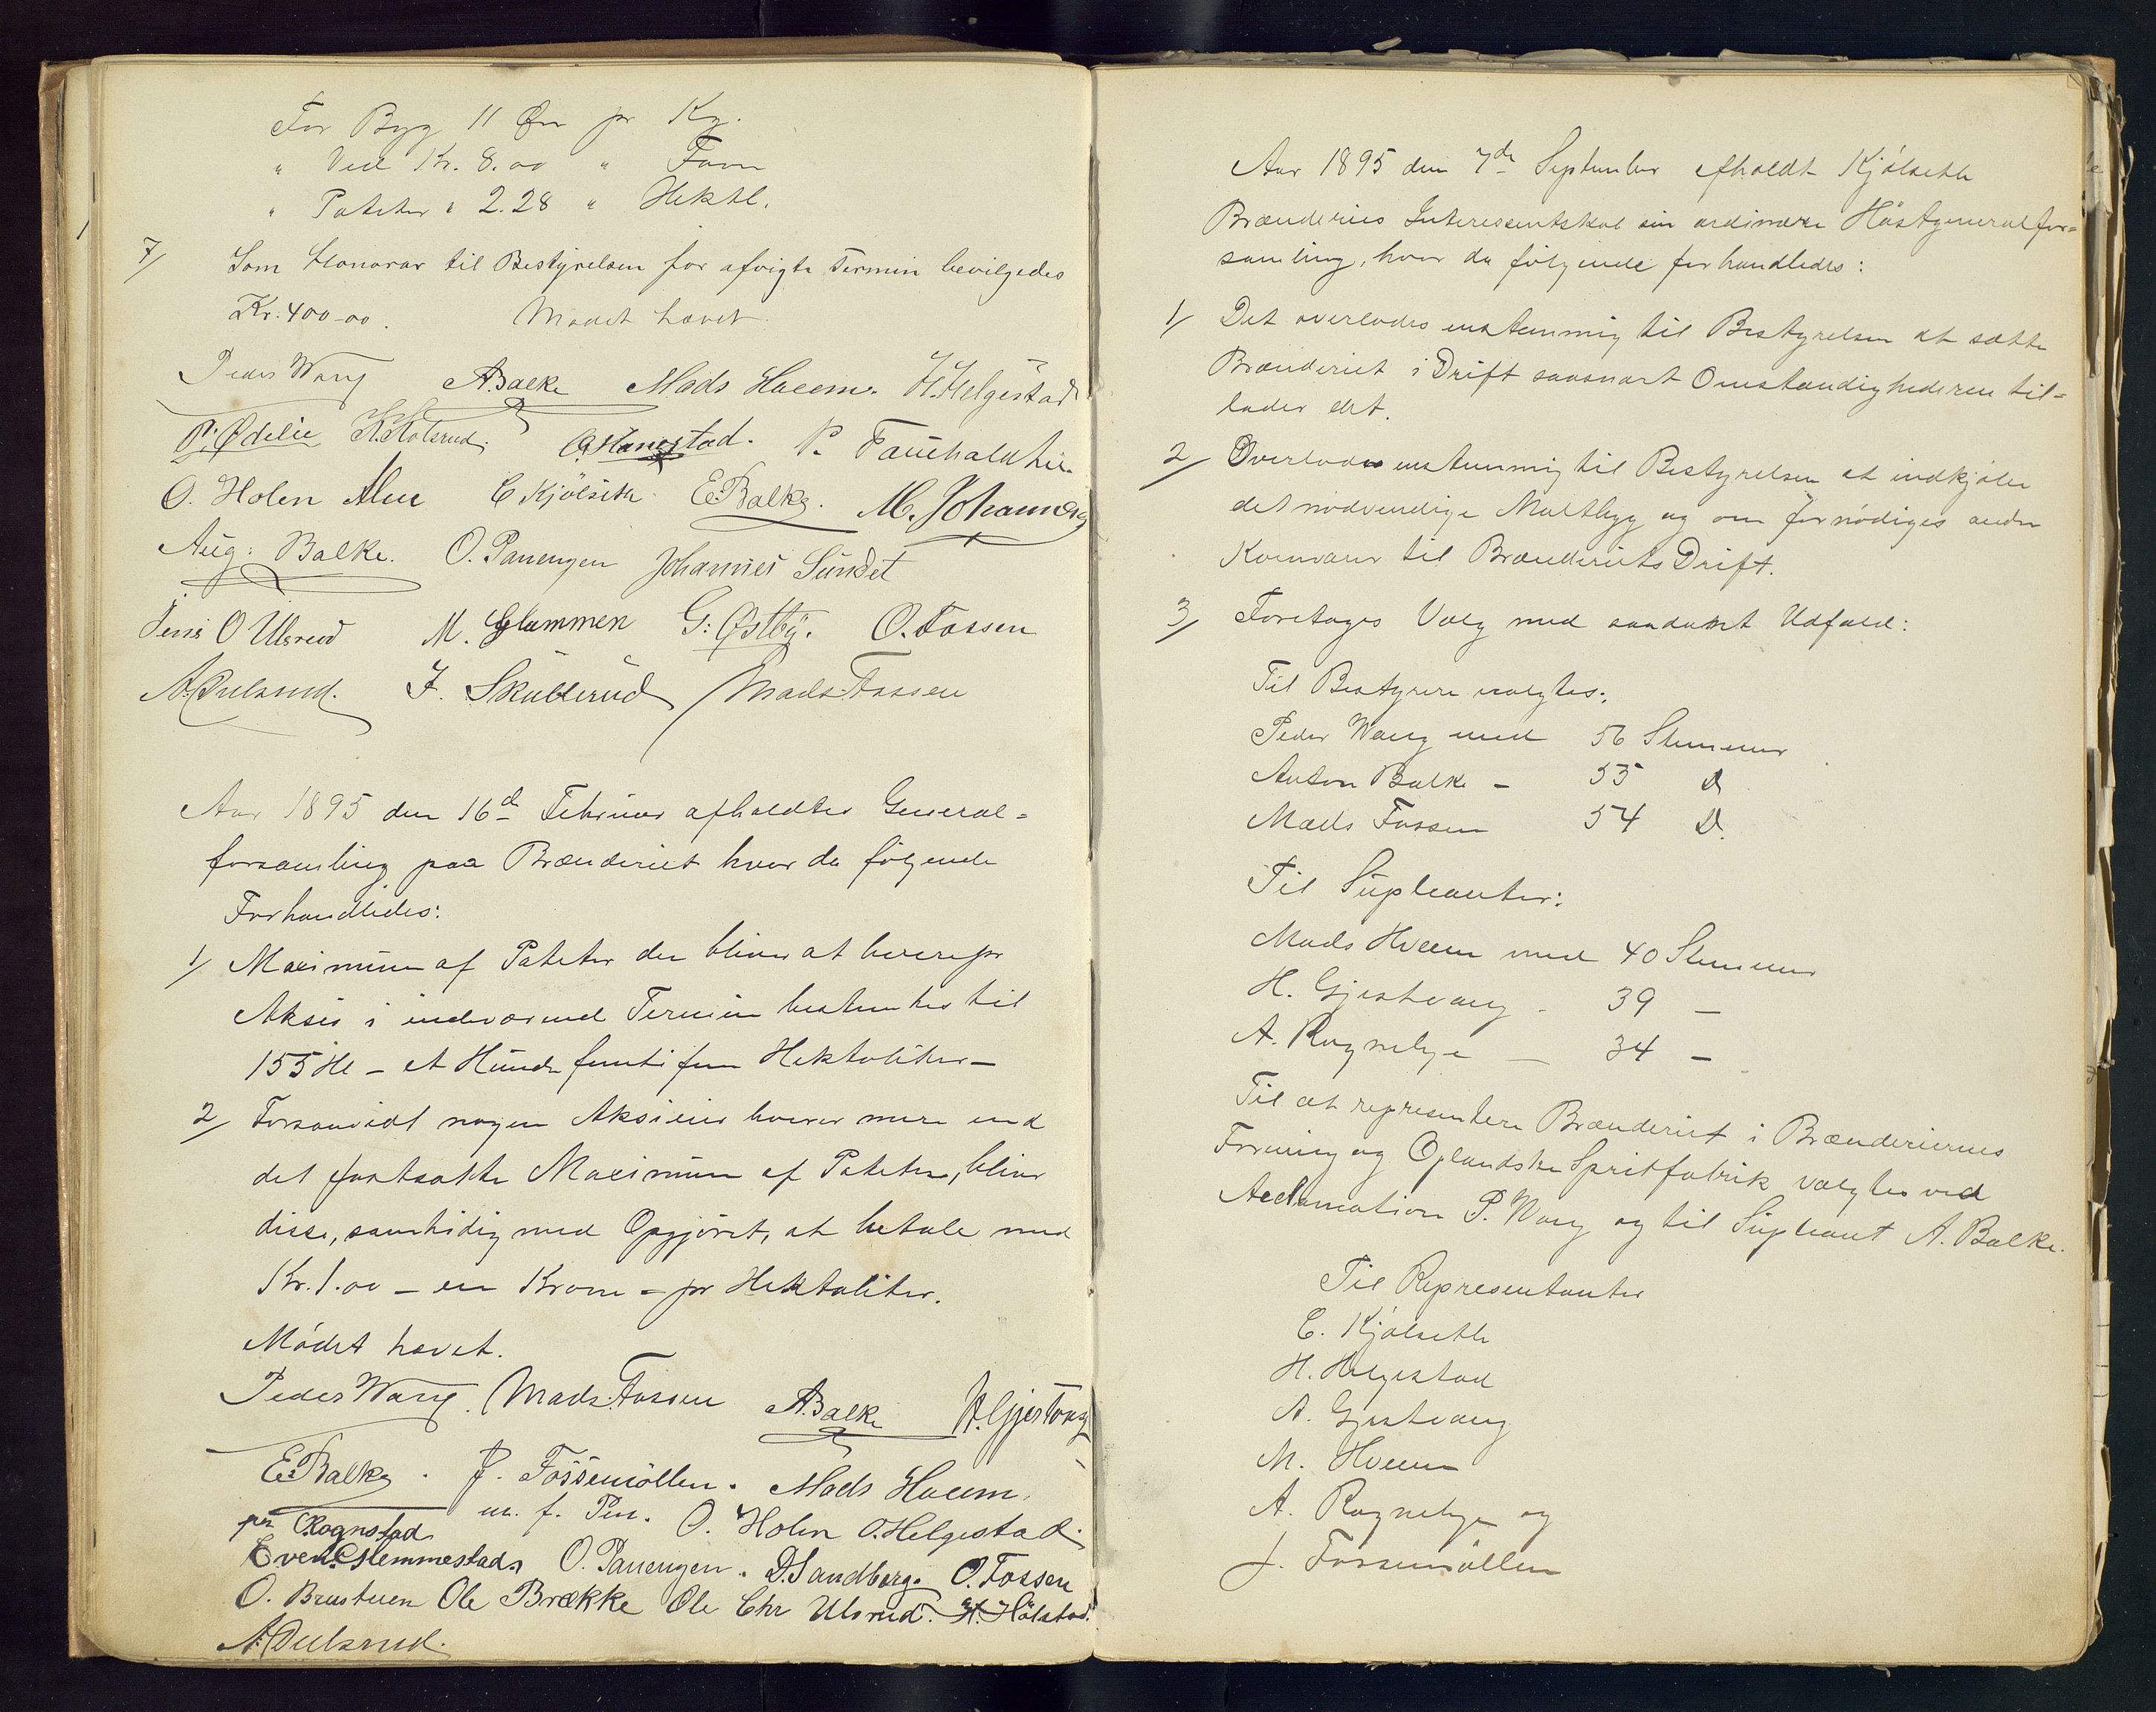 For Byg 11 Øre pr Kg.
" Ved Kr. 8.00 " Favn
" Poteter " 2.28 " Hektl.
7/ Som Honorar til Bestyrelsen for afvigte Termin bevilgedes
Kr. 400-00. Mødet hævet.
Peder Wang ABalke Mads Hveem. H. Helgestad
P. Ødelie K. Kolsrud. P. Fauchald
O. Holen C Kjölseth E. Balke. M. Johannesen
Aug: Balke. O. Panengen Johannes Sundet
Jens O Ulsrud M. Glemmen G: Østby. O. Fossen
A. Dulsrud. J. Skullerud Mads Fossen
Aar 1895 den 16de Februar afholdtes General=
forsamling paa Brænderiet hvor da følgende
Forhandledes:
1/ Maximum af Poteter der bliver at levere pr
Aksie i indeværende Termin bestemtes til
155 Hl – et Hundre femti fem Hektoliter –
2/ Forsaavidt nogen Aksieeier leverer mere end
det fastsatte Maximum af Poteter, bliver
disse, samtidig med Opgjøret, at betale med
Kr. 1.00 – en Krone – pr Hektoliter.
Mødet hævet.
Peder Wang. Mads Fossen ABalke H. Gjestvang
E. Balke. J. Fossemöllen. Mads Hveem.
Rognstad m. f. Pen. O. Holen O. Helgestad.
Even Glemmestad. O. Panengen. D. Sandberg. O. Fossen
O. Brustuen Ole Brække Ole Chr Ulsrud. H. Hölstad.
A. Dulsrud.
Aar 1895 den 7de September afholdt Kjölseth
Brænderies Interessentskab sin ordinære Höstgeneralfor=
samling, hvor da fölgende forhandledes:
1/ Det overlodes enstemmig til Bestyrelsen at sætte
Brænderiet i Drift saasnart Omstændighederne til=
lader det.
2/ Overlodes enstemmig til Bestyrelsen at indkjøbe
det nødvendige Maltbyg og om fornödiges andre
Kornvarer til Brænderiets Drift.
3/ Foretoges Valg med saadant Udfald:
Til Bestyrere valgtes:
Peder Wang med 56 Stemmer
Anton Balke – 55 D
Mads Fossen 54 D.
Til Supleanter:
Mads Hveem med 40 Stemmer
H. Gjestvang - 39 –
A. Rognelye — 34 –
Til at representere Brænderiet i Brænderiernes
Forening og Oplandske Spritfabrik valgtes ved
Acclamation P. Wang og til Supleant A. Balke.
Til Representanter
C. Kjölseth
H. Helgestad
A. Gjestvang
M. Hveem
A. Rognelye og
J. Fossemöllen